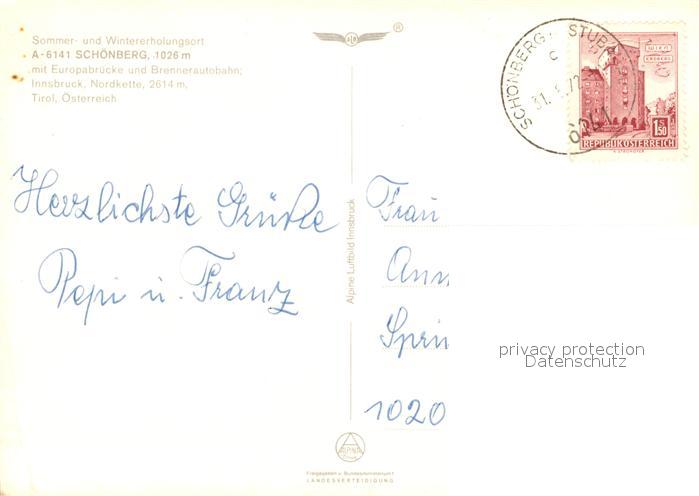 Sommer- und Wintererholungsort
A-6141 SCHÖNBERG, 1026 m
mit Europabrücke und Brennerautobahn;
Innsbruck, Nordkette, 2614 m,
Tirol, Österreich
®
SCHÖNBERG STUB
c
31. 72
6141
1S50
REPUBLIK ÖSTERREICH
Herzlichste Grüße
Pepi u. Franz
Alpine Luftbild Innsbruck
Frau
Ann
Sprin
1020
privacy protection
Datenschutz
ALPINA
Freigegeben v. Bundesministerium f.
LANDESVERTEIDIGUNG